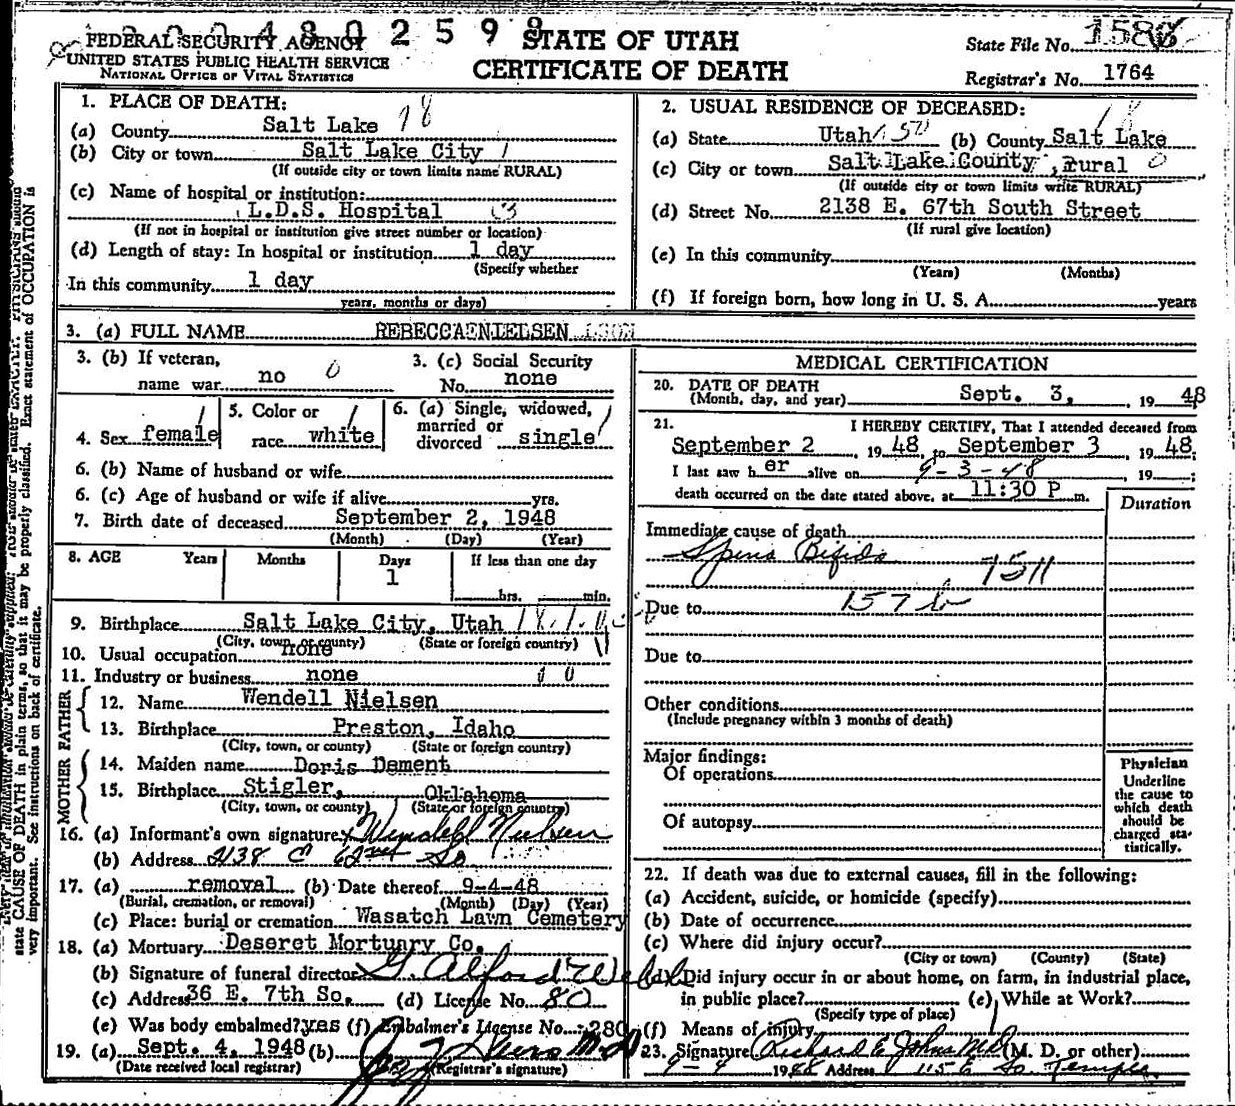 2 0 0 4 8 0 2 5 9 8
FEDERAL SECURITY AGENCY
UNITED STATES PUBLIC HEALTH SERVICE
NATIONAL OFFICE OF VITAL STATISTICS
STATE OF UTAH
CERTIFICATE OF DEATH
State File No.
Registrar's No. 1764
1. PLACE OF DEATH:
(a) County Salt Lake 18
(b) City or town Salt Lake City 1
(If outside city or town limits name RURAL)
(c) Name of hospital or institution:
L.D.S. Hospital 03
(If not in hospital or institution give street number or location)
(d) Length of stay: In hospital or institution 1 day
(Specify whether
In this community 1 day
years, months or days)
2. USUAL RESIDENCE OF DECEASED:
(a) State Utah (b) County Salt Lake 18
(c) City or town Salt Lake County, rural 0
(If outside city or town limits write RURAL)
(d) Street No. 2138 E. 67th South Street
(If rural give location)
(e) In this community
(Years) (Months)
(f) If foreign born, how long in U. S. A. years
3. (a) FULL NAME REBECCA NIELSEN
3. (b) If veteran,
name war no 0
3. (c) Social Security
No. none
4. Sex female 1
5. Color or
race white 1
6. (a) Single, widowed,
married or
divorced single 1
6. (b) Name of husband or wife
6. (c) Age of husband or wife if alive yrs.
7. Birth date of deceased September 2, 1948
(Month) (Day) (Year)
8. AGE Years Months Days If less than one day
1
hrs. min.
9. Birthplace Salt Lake City, Utah
(City, town, or county) (State or foreign country)
10. Usual occupation none
11. Industry or business none
FATHER
12. Name Wendell Nielsen
13. Birthplace Preston, Idaho
(City, town, or county) (State or foreign country)
MOTHER
14. Maiden name Doris Dement
15. Birthplace Stigler, Oklahoma
(City, town, or county) (State or foreign country)
16. (a) Informant's own signature x Wendell Nielsen
(b) Address 2138 E 62nd So
17. (a) removal (b) Date thereof 9-4-48
(Burial, cremation, or removal) (Month) (Day) (Year)
(c) Place: burial or cremation Wasatch Lawn Cemetery
18. (a) Mortuary Deseret Mortuary Co.
(b) Signature of funeral director G Alford Webb
(c) Address 36 E. 7th So. (d) License No. 80
(e) Was body embalmed? yes (f) Embalmer's License No. 280
19. (a) Sept. 4, 1948 (b)
(Date received local registrar) (Registrar's signature)
MEDICAL CERTIFICATION
20. DATE OF DEATH
(Month, day, and year) Sept. 3, 1948
21. I HEREBY CERTIFY, That I attended deceased from
September 2 1948, to September 3 1948;
I last saw her alive on 9-3-48, 19 ;
death occurred on the date stated above, at 11:30 P m.
Duration
Immediate cause of death
Spina Bifida 7511
Due to 157 b
Due to
Other conditions
(Include pregnancy within 3 months of death)
Major findings:
Of operations
Of autopsy
Physician
Underline
the cause to
which death
should be
charged sta-
tistically.
22. If death was due to external causes, fill in the following:
(a) Accident, suicide, or homicide (specify)
(b) Date of occurrence
(c) Where did injury occur?
(City or town) (County) (State)
(d) Did injury occur in or about home, on farm, in industrial place,
in public place? (e) While at Work?
(Specify type of place)
(f) Means of injury
23. Signature Richard E Johns MD (M. D. or other)
9-4 1948 Address 115 E So. Temple
state CAUSE OF DEATH in plain terms, so that it may be properly classified. Exact statement of OCCUPATION is
very important. See instructions on back of certificate.